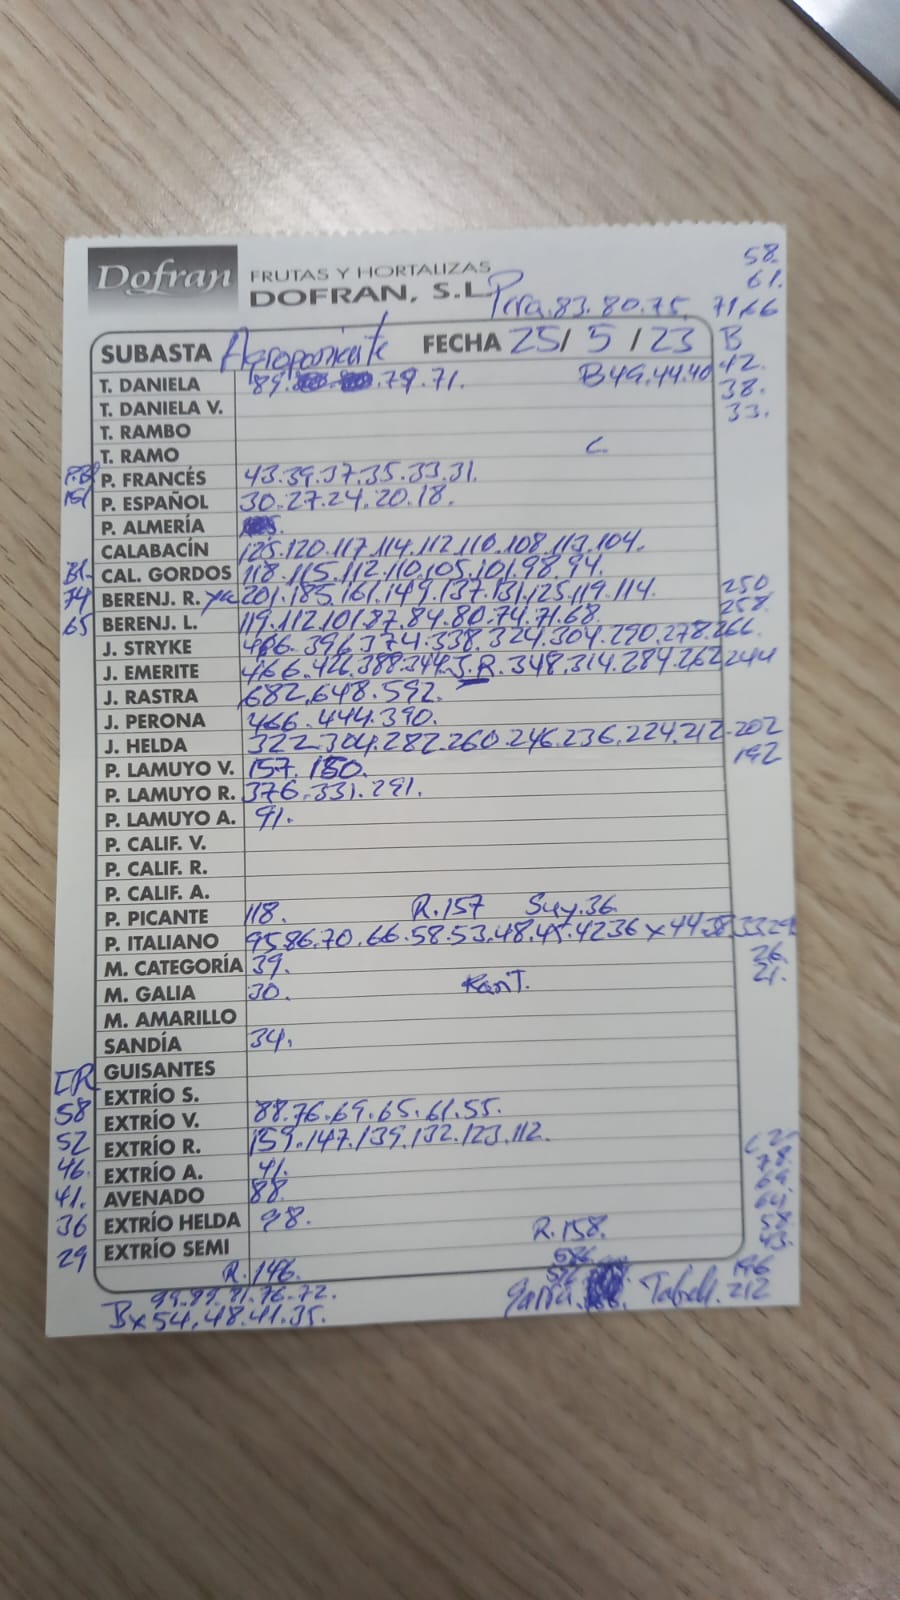 Dofran
FRUTAS Y HORTALIZAS
DOFRAN, S.L.
58.
61.
Pera.83.80.75. 71.66
SUBASTA Agroponiente FECHA 25/5/23 B
T. DANIELA 89. 79.71. B49.44.40 42.
38.
T. DANIELA V. 33.
T. RAMBO
T. RAMO C.
P. FRANCÉS 43.39.37.35.33.31.
P. ESPAÑOL 30.27.24.20.18.
P. ALMERÍA
CALABACÍN 125.120.117.114.112.110.108.113.104.
CAL. GORDOS 118.115.112.110.105.101.98.94.
74 BERENJ. R. 201.185.161.149.137.131.125.119.114. 250
258.
65 BERENJ. L. 119.112.101.87.84.80.74.71.68.
J. STRYKE 406.396.374.338.324.304.290.278.266.
J. EMERITE 466.422.388.344.J.R.348.314.284.262.244
J. RASTRA 682.648.592.
J. PERONA 466.444.390.
J. HELDA 322.304.282.260.246.236.224.212.202
192
P. LAMUYO V. 157.150.
P. LAMUYO R. 376.331.291.
P. LAMUYO A. 91.
P. CALIF. V.
P. CALIF. R.
P. CALIF. A.
P. PICANTE 118. R.157 Suy.36
P. ITALIANO 95.86.70.66.58.53.48.45.42.36x44.38.33.29
26.
21.
M. CATEGORÍA 39.
M. GALIA 30.
M. AMARILLO
SANDÍA 34.
GUISANTES
EXTRÍO S.
58 EXTRÍO V. 88.76.69.65.61.55.
52 EXTRÍO R. 159.147.139.132.123.112.
46. EXTRÍO A. 41.
41. AVENADO 88
36 EXTRÍO HELDA 98.
29 EXTRÍO SEMI R.158.
R.146.
99.89.81.76.72.
Bx54.48.41.35.
Garra. Tabell. 196
212